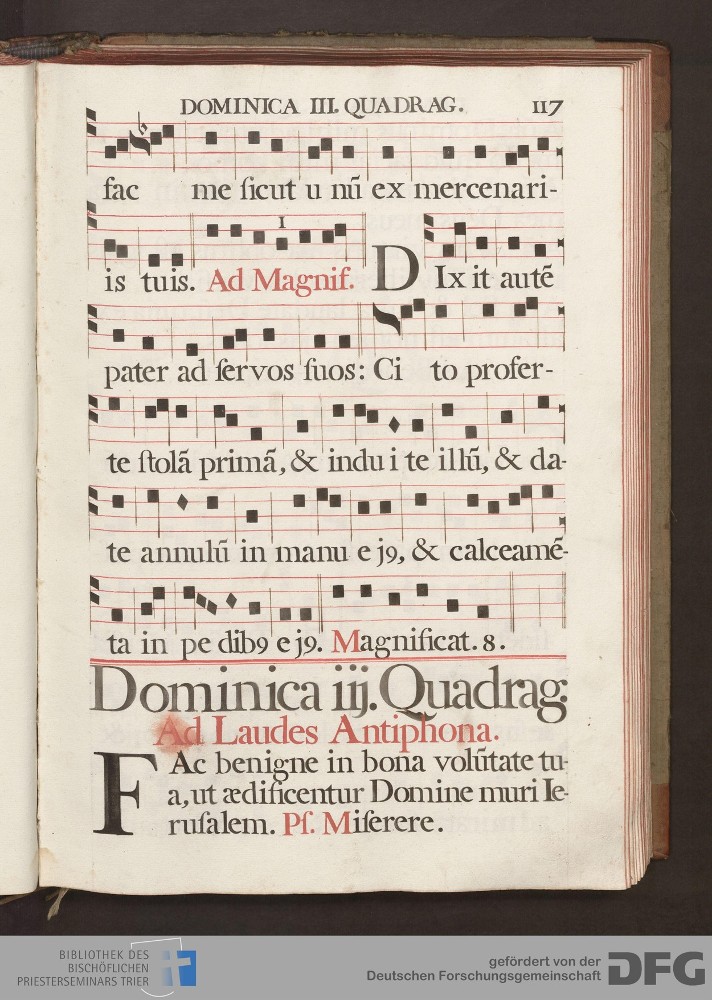 DOMINICA III. QUADRAG. 117
fac me ſicut u nū ex mercenari-
1
is tuis. Ad Magnif. DIx it autē
pater ad ſervos ſuos: Ci to profer-
te ſtolā primā, & indu i te illū, & da-
te annulū in manu e j9, & calceamē-
ta in pe dib9 e j9. Magnificat. 8.
Dominica iij. Quadrag:
Ad Laudes Antiphona.
FAc benigne in bona volūtate tu-
a, ut ædificentur Domine muri Ie-
ruſalem. Pſ. Miſerere.
BIBLIOTHEK DES
BISCHÖFLICHEN
PRIESTERSEMINARS TRIER
gefördert von der
Deutschen Forschungsgemeinschaft DFG